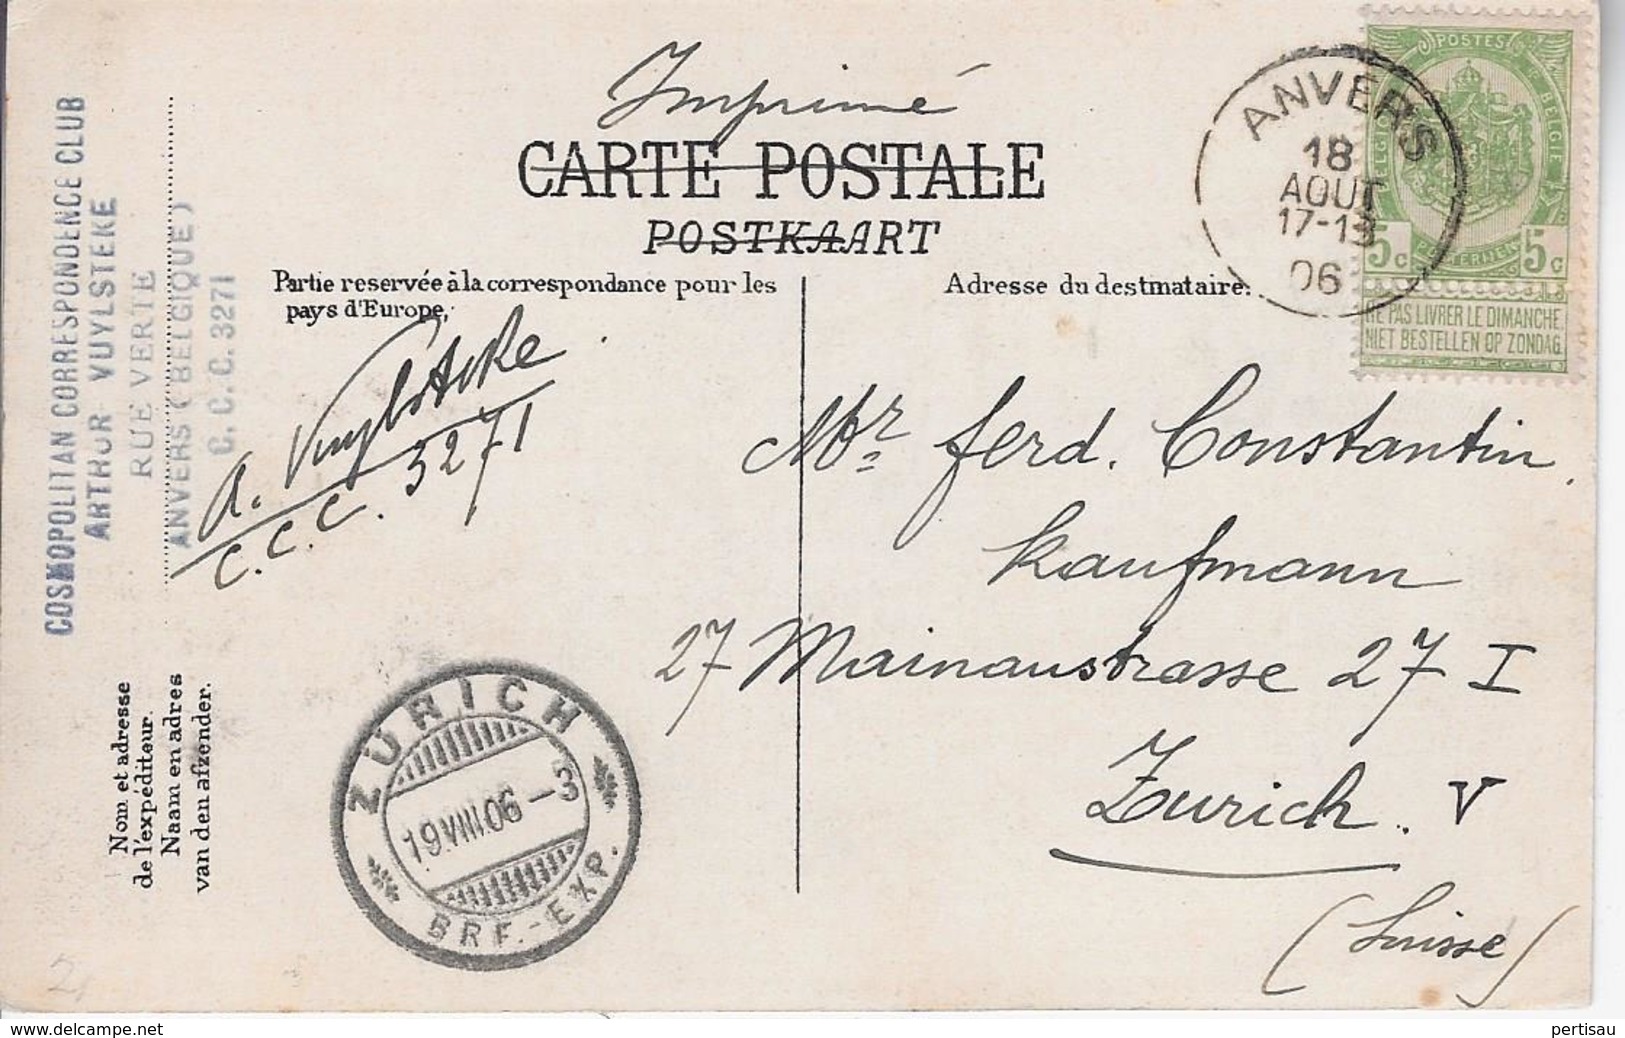 Imprimé
CARTE POSTALE
POSTKAART
Partie reservée à la correspondance pour les
pays d'Europe,
Adresse du destinataire.
ANVERS
18
AOUT
17-18
06
POSTES
BELGIQUE
BELGIË
POSTERIJEN
5c 5c
NE PAS LIVRER LE DIMANCHE
NIET BESTELLEN OP ZONDAG
COSMOPOLITAN CORRESPONDENCE CLUB
ARTHUR VUYLSTEKE
RUE VERTE
ANVERS (BELGIQUE)
C. C. C. 3271
A. Vuylsteke
C.C.C. 3271
Mr ferd. Constantin,
Kaufmann
27 Mainaustrasse 27 I
Zurich. V
(Suisse)
Nom et adresse
de l'expéditeur.
Naam en adres
van den afzender.
ZÜRICH
19.VIII.06 - 3
BRF.-EXP.
2,
© delcampe.net
pertisau